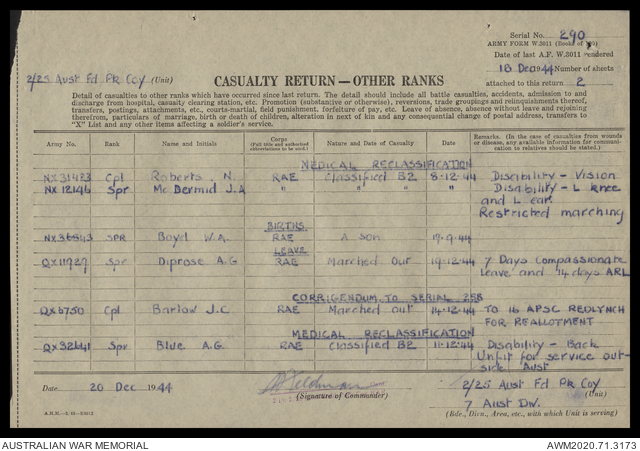 Serial No. 290
ARMY FORM W.3011 (Books of 100)
Date of last A.F. W.3011 rendered
2/25 Aust Fd Pk Coy (Unit) CASUALTY RETURN—OTHER RANKS 18 Dec 1944 Number of sheets
attached to this return 2
Detail of casualties to other ranks which have occurred since last return. The detail should include all battle casualties, accidents, admission to and
discharge from hospital, casualty clearing station, etc. Promotion (substantive or otherwise), reversions, trade groupings and relinquishments thereof,
transfers, postings, attachments, etc., courts-martial, field punishment, forfeiture of pay, etc. Leave of absence, absence without leave and rejoining
therefrom, particulars of marriage, birth or death of children, alteration in next of kin and any consequential change of postal address, transfers to
"X" List and any other items affecting a soldier's service.
Army No. Rank Name and Initials Corps (Full title and authorized abbreviations to be used.) Nature and Date of Casualty Remarks. (In the case of casualties from wounds or disease, any available information for communication to relatives should be stated.)
MEDICAL RECLASSIFICATION
NX31423 Cpl Roberts. N. RAE Classified B2 8-12-44 Disability - Vision
NX 12146 Spr McDermid J.A " " " " Disability - L knee
and L ear.
Restricted marching
BIRTHS
SPR Boyd W.A. RAE A son -9-44
LEAVE
QX11927 Spr Diprose A.G RAE Marched Out 14-12-44 7 Days Compassionate
leave and 14 days ARL
CORRIGENDUM TO SERIAL 258
QX6750 Cpl Barlow J.C RAE Marched out 14-12-44 TO 16 APSC REDLYNCH
FOR REALLOTMENT
MEDICAL RECLASSIFICATION
QX32641 Spr Blue A.G. RAE Classified B2 11-12-44 Disability - Back
Unfit for service out-
side Aust
Date 20 Dec 1944 (Signature of Commander) 2/25 Aust Fd Pk Coy (Unit)
7 Aust Div.
(Bde., Divn., Area, etc., with which Unit is serving)
AUSTRALIAN WAR MEMORIAL AWM2020.71.3173